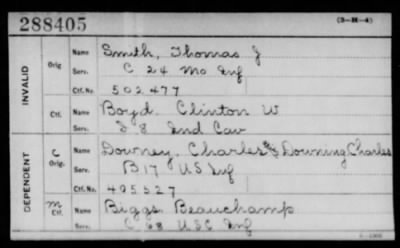 288405 (3-H-4)
INVALID
Orig
Name Smith, Thomas J
Serv. C 24 Mo Inf
Ctf. No. 502.477
Ctf.
Name Boyd. Clinton W
Serv. I 8 Ind Cav
DEPENDENT
C
Orig.
Name Downey, Charles Downing Charles
Serv. B 17 US Inf
Ctf. No. 405527
m
Ctf.
Name Biggs Beauchamp
Serv. C 68 U.S.C Inf